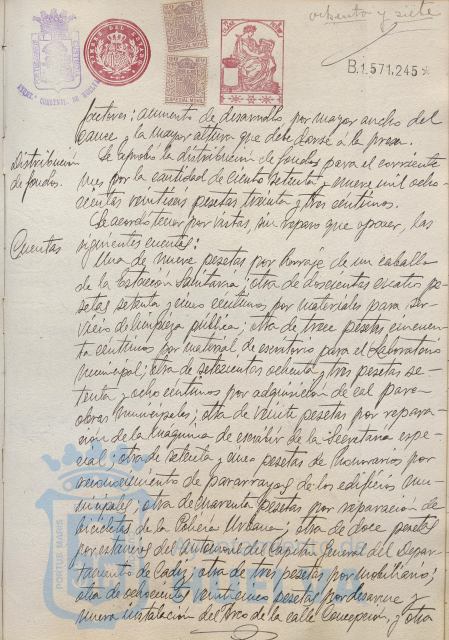 ochenta y siete
TIMBRE DEL ESTADO
ESPECIAL MOVIL
ESPECIAL MOVIL
B.1.571.245
factores: aumento de desarrollo por mayor ancho del
cauce y la mayor altura que debe darse á la presa.
Distribución de fondos.
Se aprobó la distribución de fondos para el corriente
mes por la cantidad de ciento setenta y nueve mil ocho-
cientas veintiseis pesetas treinta y tres centimos.
Cuentas
Se acordó tener por vistas, sin reparo que oponer, las
siguientes cuentas:
Una de nueve pesetas por herraje de un caballo
de la Estación Sanitaria; otra de doscientas cuatro pe-
setas setenta y cinco centimos por materiales para ser-
vicio de limpieza pública; otra de trece pesetas cincuen-
ta centimos por material de escritorio para el Laboratorio
Municipal; otra de setecientas ochenta y tres pesetas se-
tenta y ocho centimos por adquisición de cal para
obras municipales; otra de veinte pesetas por repara-
ción de la maquina de escribir de la Secretaría espe-
cial; otra de setenta y cinco pesetas de honorarios por
reconocimiento de pararrayos de los edificios mu-
nicipales; otra de cuarenta pesetas por reparación de
bicicletas de la Policia Urbana; otra de doce pesetas
por estancias del automovil del Capitan General del Depar-
tamento de Cadiz; otra de tres pesetas por mobiliario;
otra de ochocientas veinticinco pesetas por desarme y
nueva instalación del Arco de la calle Concepción, y otra
PORTUS MADRIS